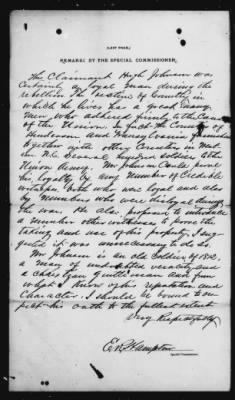 (LAST PAGE.)
REMARKS BY THE SPECIAL COMMISSIONER.
The Claimant High Johnson was
certainly a loyal man during the
rebellion. The section of Country in
which he lives has a great many
men, who adhered firmly to the Cause
of the Union. In fact the County of
Henderson and Transylvania furnished
together with other Counties in West
ern N.C. several hundred soldiers to the
Union Army. Mr Johnson could prove
his loyalty by any Number of Credible
witnesses, both who were loyal and also
by numbers who were disloyal during
the war. He also proposed to introduce
a number other witnesses to prove the
taking and use of his property. I sug
gested it was unnecessary to do so.
Mr Johnson is an old Soldier of 1812,
a man of undoubted veracity and
a christian gentleman and from
what I know of his reputation and
Character, I should be bound to res
pect his oath to the fullest extent
Very Respectfully
E R Hampton
Special Commissioner.